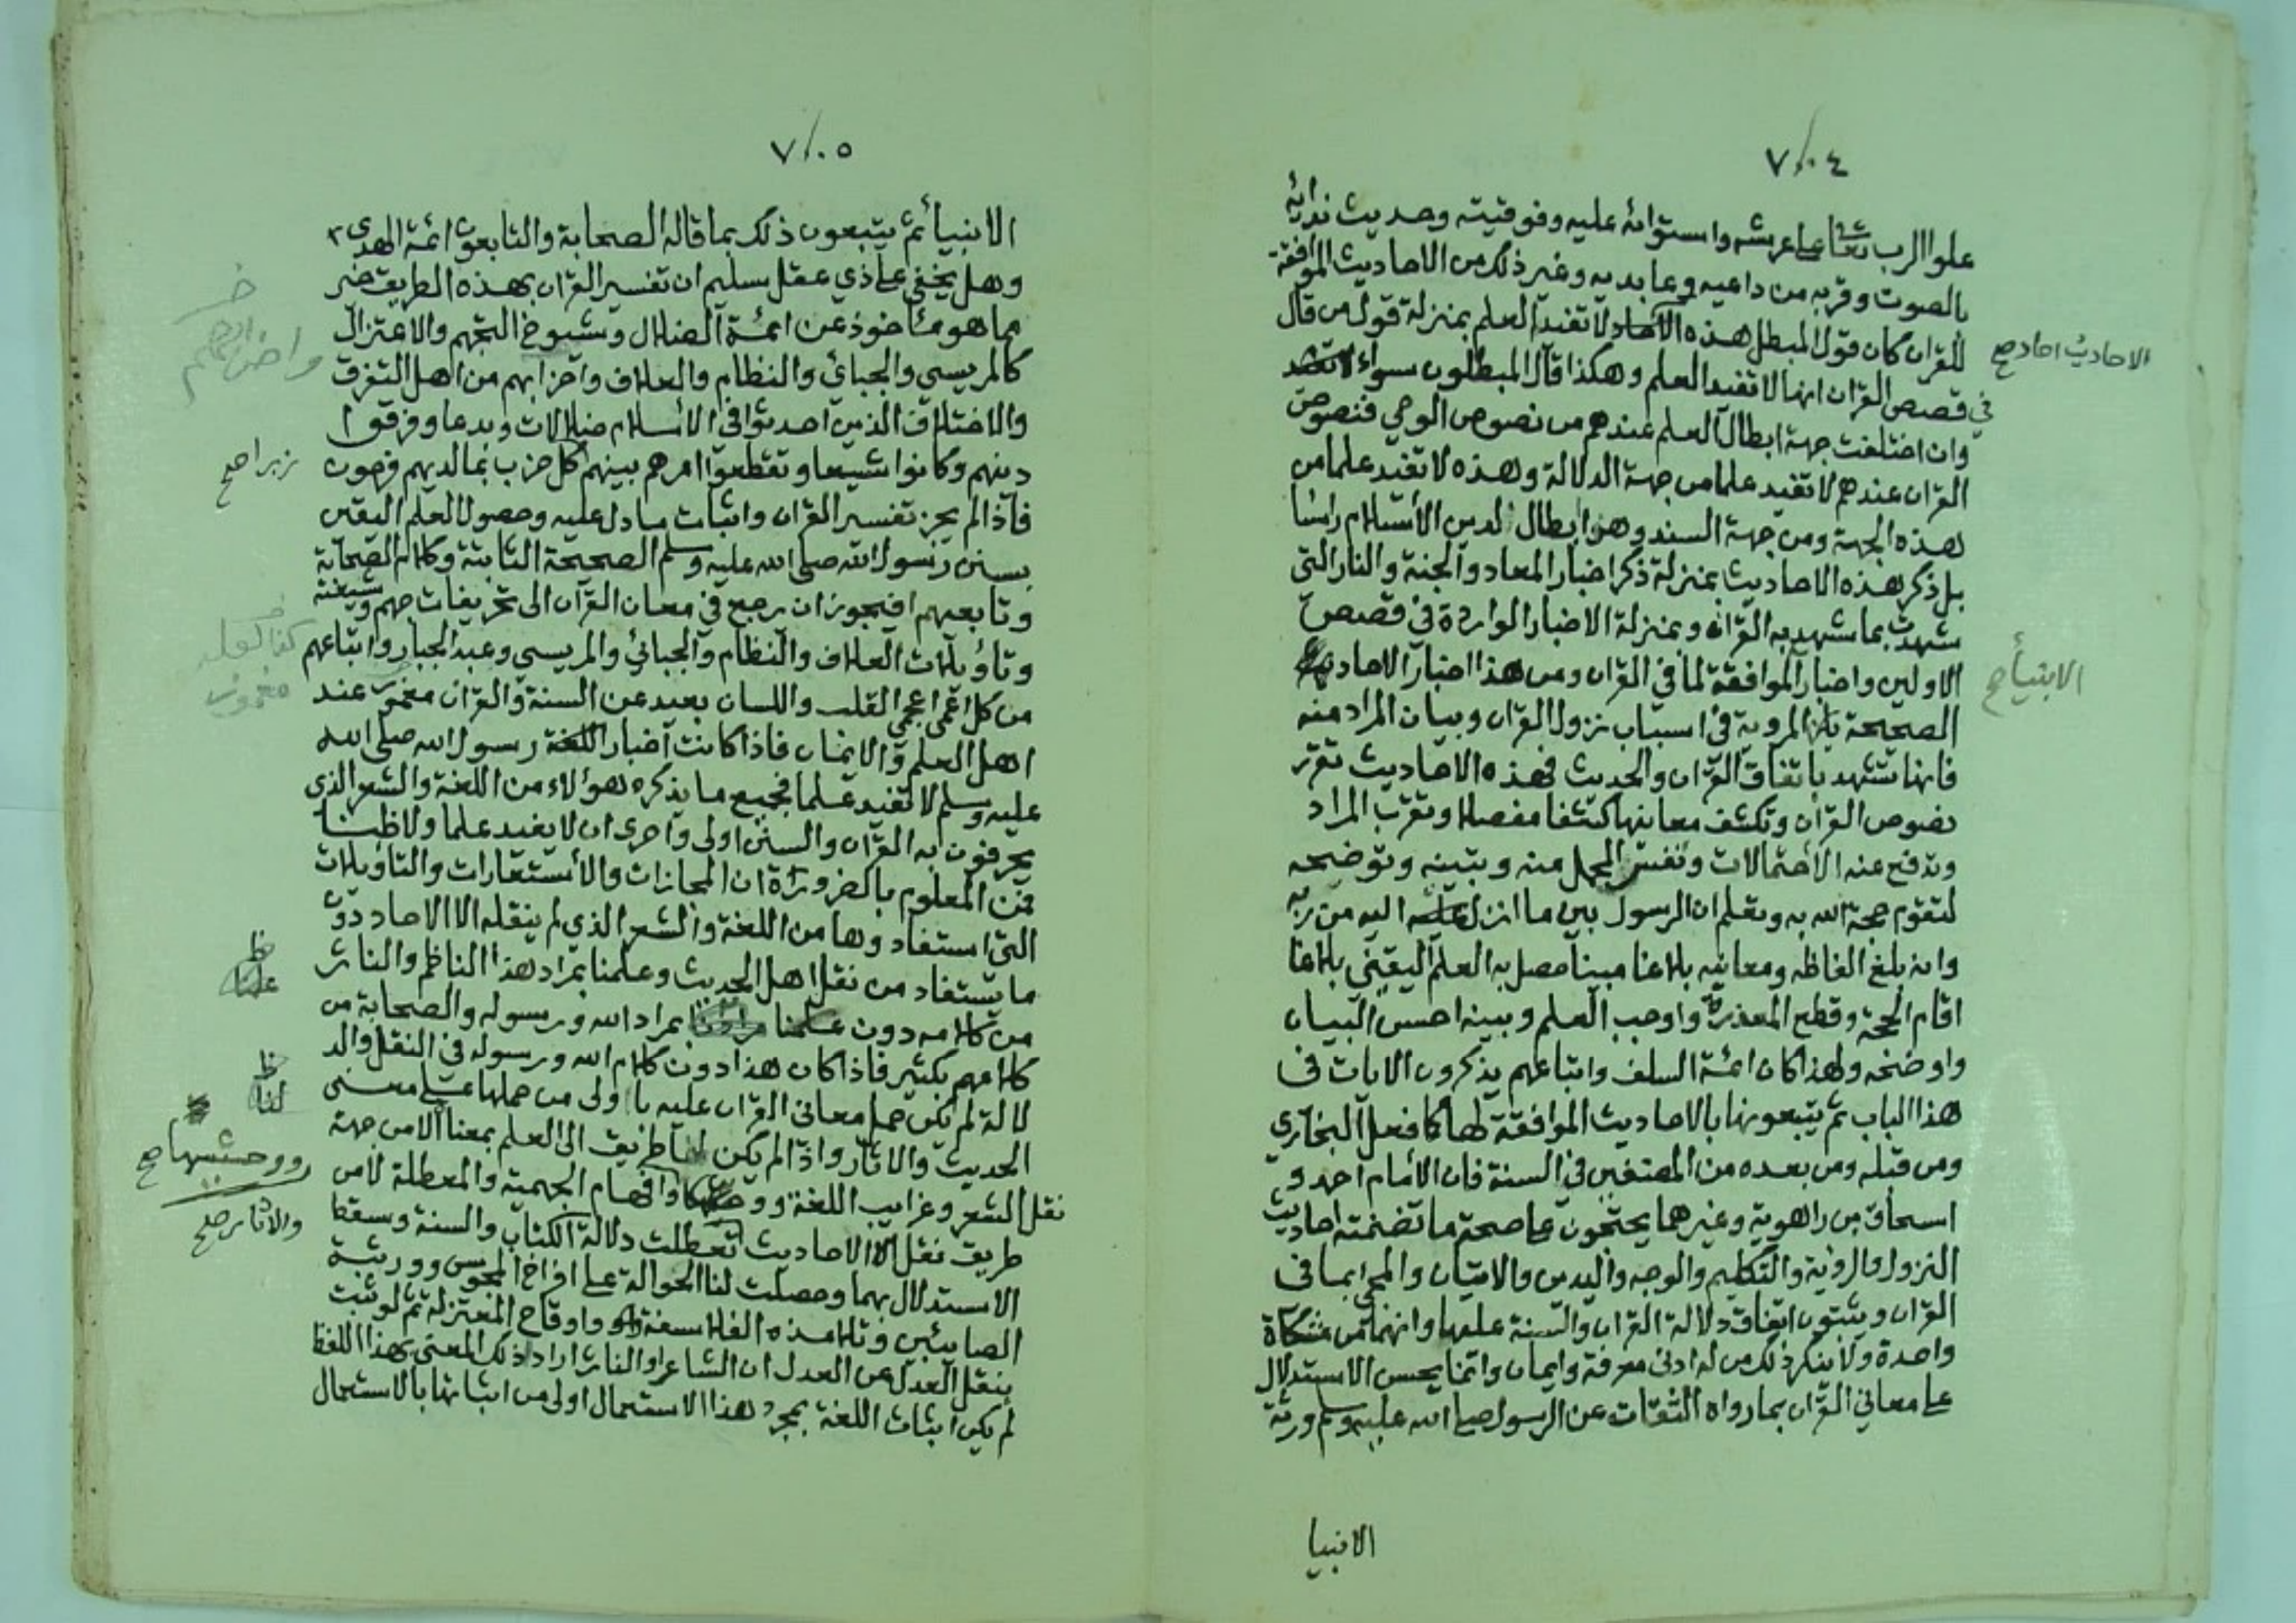 ٧٠٤
علو الرب تعالى على عرشه واستوائه عليه وفوقيته وحديث ندائه
بالصوت وقربه من داعيه وعابديه وغير ذلك من الاحاديث الموافقة
للقران كان قول المبطل هذه الآحاد لا تفيد العلم بمنزلة قول من قال
الاحاديث احاد صح
في قصص القران انها لا تفيد العلم وهكذا قال المبطلون سواء
وان اختلفت جهة ابطال العلم عندهم من نصوص الوحي فنصوص
القران عندهم لا تفيد علما من جهة الدلالة وهذه لا تفيد علما من
هذه الجهة ومن جهة السند وهو ابطال لدين الأسلام راسًا
بل ذكر هذه الاحاديث بمنزلة ذكر اخبار المعاد والجنة والنار التي
شهدت بما شهد به القران وبمنزلة الاخبار الواردة في قصص
الاولين واخبار الموافقة لما في القران ومن هذا اخبار الاحاد
الانبيأ صح
الصحيحة المروية في اسباب نزول القران وبيان المراد منه
فانها تشهد باتفاق القران والحديث فهذه الاحاديث تقرر
نصوص القرأن وتكشف معانيها كشفا مفصلا وتقرب المراد
وتدفع عنه الاحتمالات وتفسر المجمل منه وتبينه وتوضحه
لتقوم حجة الله به ونعلم ان الرسول بين ما انزل اليه من ربه
وانه بلغ الفاظه ومعانيه بلاغا مبينا حصل به العلم اليقيني بلاغا
اقام الحجة وقطع المعذرة واوجب العلم وبينه احسن البيان
واوضحه ولهذا كان ائمة السلف واتباعهم يذكرون الايات في
هذا الباب ثم يتبعونها بالاحاديث الموافقة لها كما فعل البخاري
ومن قبله ومن بعده من المصنفين في السنة فان الأمام احمد و
اسحاق بن راهوية وغيرهما يحتجون على صحة ما تضمنته احاديث
النزول والرؤية والتكليم والوجه واليدين والاتيان والمجي بما في
القران ويثبتون اتفاق دلالة القران والسنة عليها وانهما من مشكاة
واحدة ولا ينكر ذلك من له ادنى معرفة وايمان وانما يحسن الاستدلال
على معاني القران بما رواه الثقات عن الرسول صلى الله عليه وسلم ورثة
الانبيا
٧٠٥
الانبيأ ثم يتبعون ذلك بما قاله الصحابة والتابعون ائمة الهدى
وهل يخفى على ذي عقل سليم ان تفسير القران بهذه الطريق خير
مما هو مأخوذ عن ائمة الضلال وشيوخ التجهم والاعتزال
كالمريسي والجبائي والنظام والعلاف واحزابهم من اهل التفرق
واضرابهم
والاختلاف الذين احدثوا في الأسلام ضلالات وبدعا وفرقوا
دينهم وكانوا شيعا وتقطعوا امرهم بينهم كل حزب بما لديهم فرحون
زبرا صح
فاذا لم يجز تفسير القران واثبات ما دل عليه وحصول العلم اليقين
بسنن رسول الله صلى الله عليه وسلم الصحيحة الثابتة وكلام الصحابة
وتابعيهم افيجوز ان يرجع في معان القران الى تحريفات جهم وشيعته
وتاؤيلات العلاف والنظام والجبائي والمريسي وعبد الجبار واتباعهم
من كل اعمى اعجمي القلب واللسان بعيد عن السنة والقران مغمور عند
اهل العلم والايمان فاذا كانت اخبار رسول الله صلى الله
عليه وسلم لا تفيد علما فجميع ما يذكره هؤلاء من اللغة والشعر الذي
يحرفون به القران والسنن اولى واحرى ان لا يفيد علما ولا ظنا
فمن المعلوم بالضرورة ان المجازات والأستعارات والتاويلات
التي استفادوها من اللغة والشعر الذي لم ينقله الا الاحاد دون
ما يستفاد من نقل اهل الحديث وعلمنا بمراد هذا الناظم والناثر
ظ علمنا
من كلامه دون علمنا بمراد الله ورسوله والصحابة من
كلامهم بكثير فاذا كان هذا دون كلام الله ورسوله في النقل والد
لالة لم يكن حمل معاني القران عليه باولى من حملها على معنى
ظ لنا
الحديث والاثار واذا لم يكن لنا طريق الى العلم بمعنا الا من جهة
نقل الشعر وغرايب اللغة وافهام الجهمية والمعطلة لا من
ووحشيها صح
طريق نقل الاحاديث تعطلت دلالة الكتاب والسنة وسقط
والاثار صح
الاستدلال بهما وحصلت لنا الحوالة على افراخ المجوس وورثة
الصابئين وتلامذه الفلاسفة واوقاح المعتزلة ثم لو ثبت
بنقل العدل عن العدل ان الشاعر او الناثر اراد ذلك المعنى بهذا اللفظ
لم يكن اثبات اللغة بمجرد هذا الاستعمال اولى من اثباتها بالاستعمال